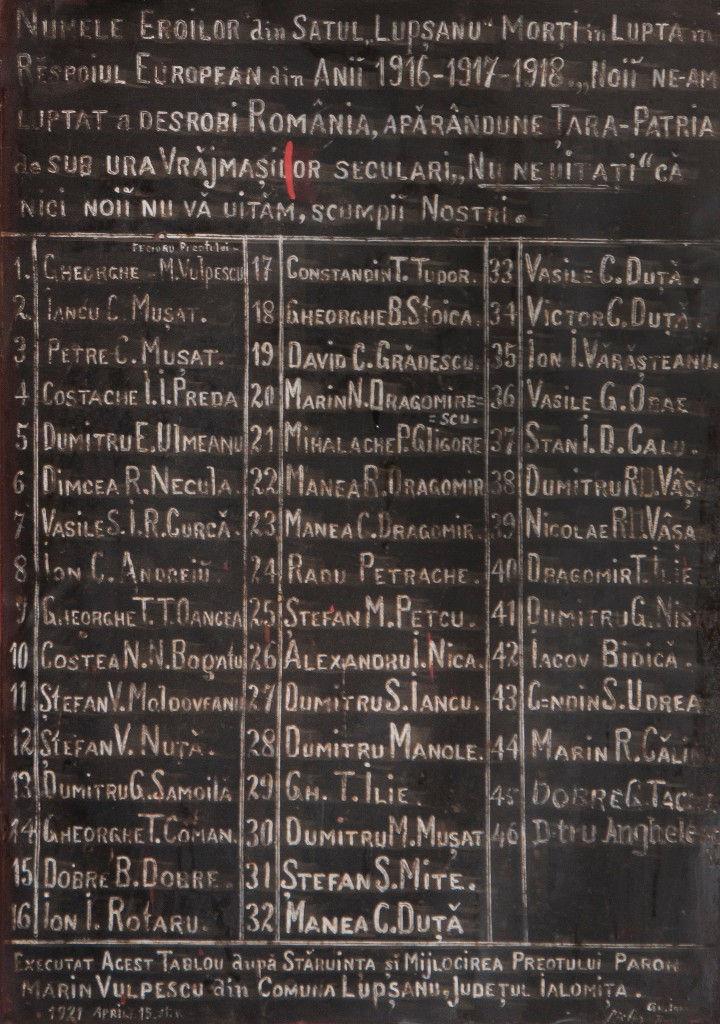 NUMELE EROILOR din SATUL „LUPȘANU" MORȚI în LUPTA în
RĔSPOIUL EUROPEAN din ANII 1916-1917-1918. „NOIĬ NE-AM
LUPTAT a DESROBI ROMÂNIA, APĂRÂNDUNE ȚARA-PATRIA
de SUB URA VRĂJMAȘILOR SECULARI „NU NE UITAȚI" CĂ
NICI NOIĬ NU VĂ UITĂM, SCUMPII NOSTRI.
FECIORU Preotului
1. GHEORGHE M. Vulpescu
2. IANCU C. MUȘAT.
3 PETRE C. MUȘAT.
4 COSTACHE I.I. PREDA
5 DUMITRU E. Ulmeanu
6 DIMCEA R. NECULA.
7 VASILE S.I.R. CURCĂ.
8 ION C. ANDREIŬ.
9 GHEORGHE T.T. OANCEA
10 COSTEA N.N. Bogatu
11 ȘTEFAN V. MOLDOVEANU
12 ȘTEFAN V. NUȚĂ.
13 DUMITRU G. SAMOILĂ
14 GHEORGHE T. COMAN.
15 DOBRE B. DOBRE.
16 ION I. ROTARU.
17 CONSTANDIN T. TUDOR.
18 GHEORGHE B. STOICA.
19 DAVID C. GRĂDESCU.
20 MARIN N. DRAGOMIRE=
=SCU.
21 MIHALACHE P. GLIGORE
22 MANEA R. DRAGOMIR
23 MANEA C. DRAGOMIR.
24 RADU PETRACHE.
25 ȘTEFAN M. PETCU.
26 ALEXANDRU I. NICA.
27 DUMITRU S. IANCU.
28 DUMITRU MANOLE.
29 GH. T. ILIE.
30 DUMITRU M. MUȘAT
31 ȘTEFAN S. MITE.
32 MANEA C. DUȚĂ
33 VASILE C. DUȚĂ.
34 VICTOR C. DUȚĂ.
35 ION I. VĂRĂȘTEANU.
36 VASILE G.
37 STAN I.D. CALU.
38 DUMITRU
39 NICOLAE
40 DRAGOMIR T. ILIE
41 DUMITRU G.
42 IACOV BIDICĂ.
43 C=NDIN S. UDREA
44 MARIN R.
45 DOBRE G.
46 D-tru Anghele
EXECUTAT ACEST TABLOU după STĂRUINȚA și MIJLOCIREA PREOTULUI PAROH
MARIN VULPESCU din COMUNA LUPȘANU, JUDEȚUL IALOMIȚA.
1921 APRILIE 15.